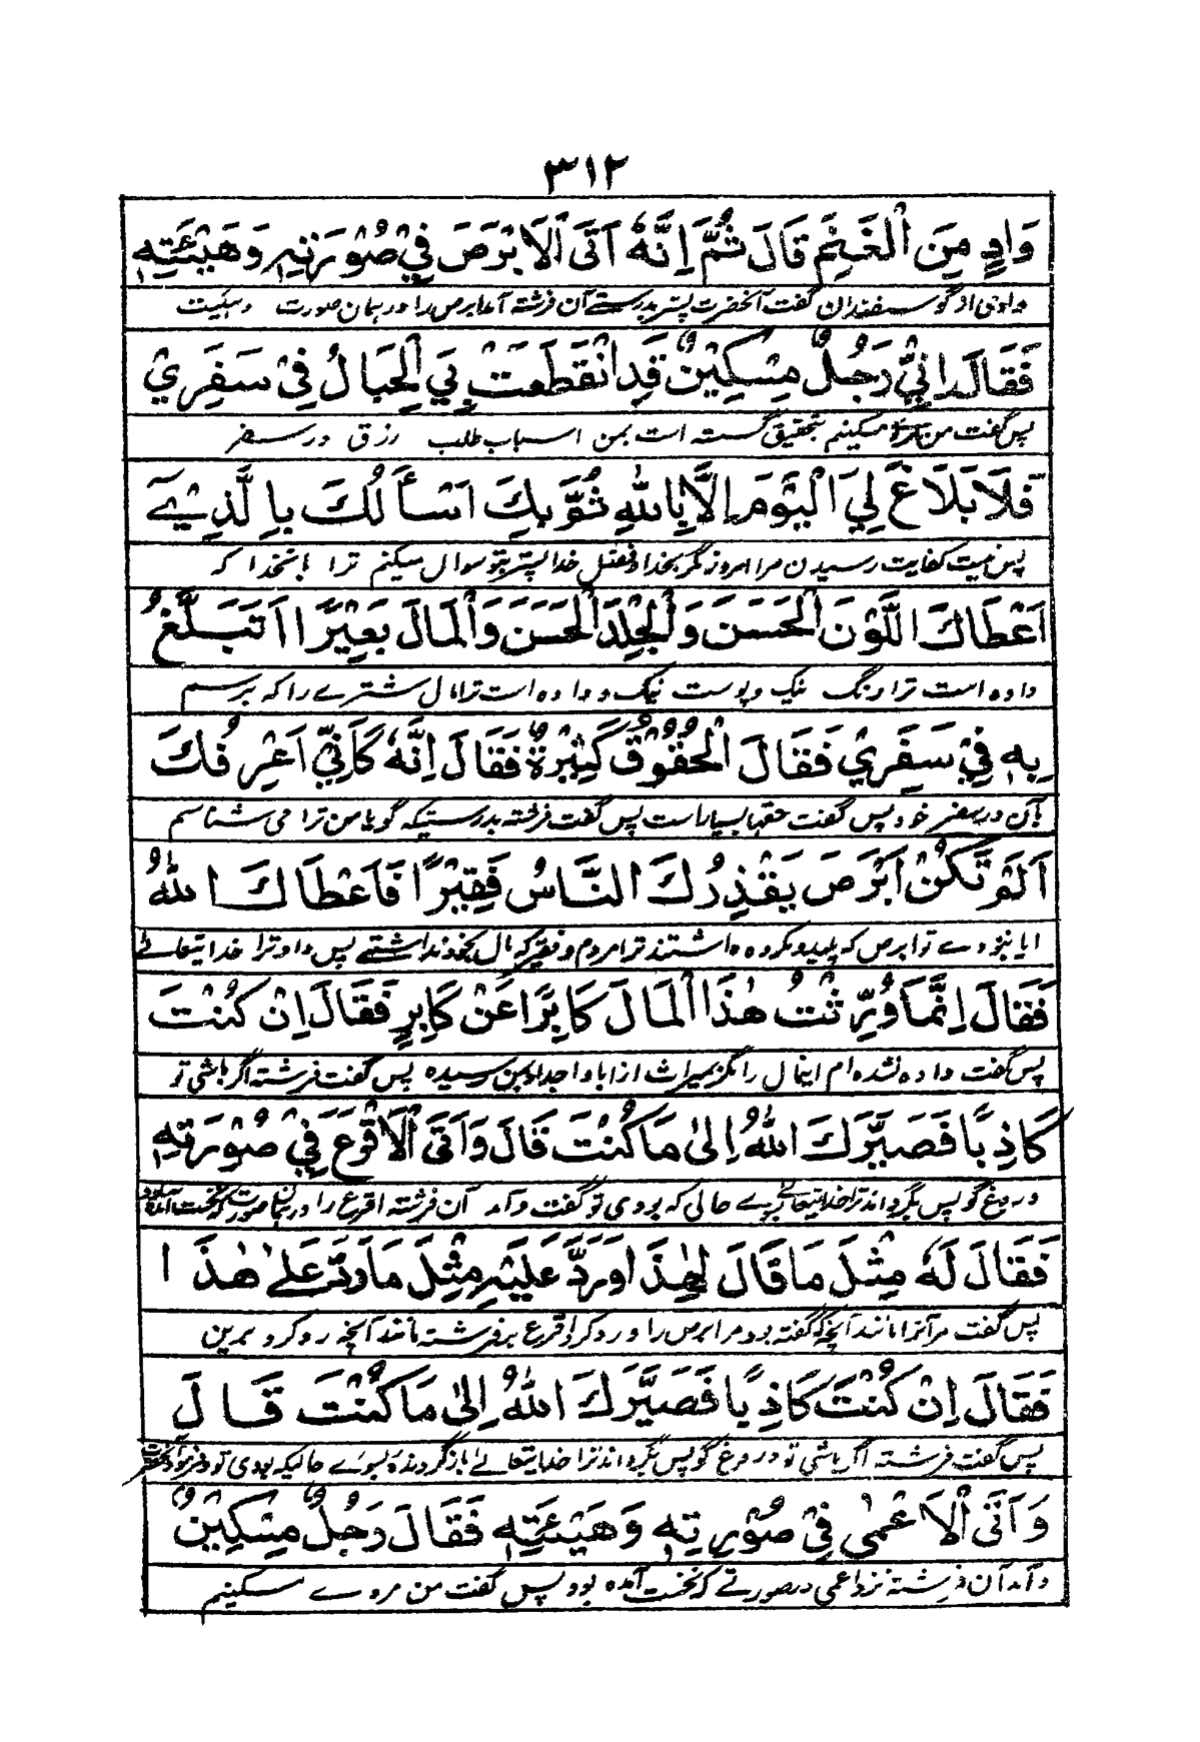 ٣١٢
وَادٍ مِنَ الْغَنَمِ قَالَ ثُمَّ اِنَّهٗ اَتَى الْاَبْرَصَ فِيْ صُوْرَتِهٖ وَهَيْئَتِهٖ
وادی از گوسفندان گفت آنحضرت پستر بدرستے آن فرشتہ آمد ابرص را در ہمان صورت وہیئت
فَقَالَ اِنِّيْ رَجُلٌ مِسْكِيْنٌ قَدِ انْقَطَعَتْ بِيَ الْحِبَالُ فِيْ سَفَرِيْ
پس گفت من مردے مسکینم بتحقیق گسستہ است بمن اسباب طلب رزق در سفر
فَلَا بَلَاغَ لِيَ الْيَوْمَ اِلَّا بِاللهِ ثُمَّ بِكَ اَسْأَلُكَ بِالَّذِيْ
پس نیست کفایت رسیدن مرا امروز مگر بخدا و فضل خدا پستر بتو سوال میکنم ترا بآنخدا کہ
اَعْطَاكَ اللَّوْنَ الْحَسَنَ وَالْجِلْدَ الْحَسَنَ وَالْمَالَ بَعِيْرًا اَتَبَلَّغُ
دادہ است ترا رنگ نیک و پوست نیک و دادہ است ترا مال شترے را کہ برسم
بِهٖ فِيْ سَفَرِيْ فَقَالَ الْحُقُوْقُ كَثِيْرَةٌ فَقَالَ اِنَّهٗ كَاَنِّيْ اَعْرِفُكَ
بآن در سفر خود پس گفت حقہا بسیار است پس گفت فرشتہ بدرستیکہ گویا من ترا می شناسم
اَلَمْ تَكُنْ اَبْرَصَ يَقْذِرُكَ النَّاسُ فَقِيْرًا فَاَعْطَاكَ اللهُ
ایا نبودے تو ابرص کہ پلید و مکروہ داشتند ترا مردم و فقیر کہ مال بخود نداشتے پس داد ترا خدایتعالے
فَقَالَ اِنَّمَا وُرِّثْتُ هٰذَا الْمَالَ كَابِرًا عَنْ كَابِرٍ فَقَالَ اِنْ كُنْتَ
پس گفت دادہ نشدہ ام اینمال را مگر بمیراث از ابا و اجداد بمن رسیدہ پس گفت فرشتہ اگر باشی تو
كَاذِبًا فَصَيَّرَكَ اللهُ اِلٰى مَا كُنْتَ قَالَ وَاَتَى الْاَقْرَعَ فِيْ صُوْرَتِهٖ
دروغ گو پس بگرداند ترا خدایتعالے بسوے حالی کہ بودی تو گفت و آمد آن فرشتہ اقرع را در ہمان صورت کہ نخست آمدہ
فَقَالَ لَهٗ مِثْلَ مَا قَالَ لِهٰذَا وَرَدَّ عَلَيْهِ مِثْلَ مَا رَدَّ عَلٰى هٰذَا
پس گفت مر آنرا مانند آنچہ گفتہ بود مر ابرص را و رد کرد اقرع بر فرشتہ مانند آنچہ رد کرد برین
فَقَالَ اِنْ كُنْتَ كَاذِبًا فَصَيَّرَكَ اللهُ اِلٰى مَا كُنْتَ قَالَ
پس گفت فرشتہ اگر باشی تو دروغ گو پس بگرداند ترا خدایتعالے بازگردندہ بسوے حالیکہ بودی تو
وَاَتَى الْاَعْمٰى فِيْ صُوْرِتِهٖ وَهَيْئَتِهٖ فَقَالَ رَجُلٌ مِسْكِيْنٌ
و آمد آن فرشتہ نزد اعمی در صورتے کہ نخست آمدہ بود پس گفت من مردے مسکینم